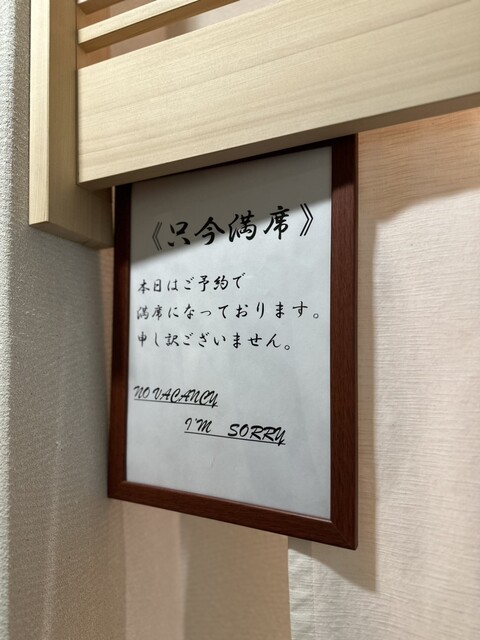 《只今満席》
本日はご予約で
満席になっております。
申し訳ございません。
NO VACANCY
I'M SORRY